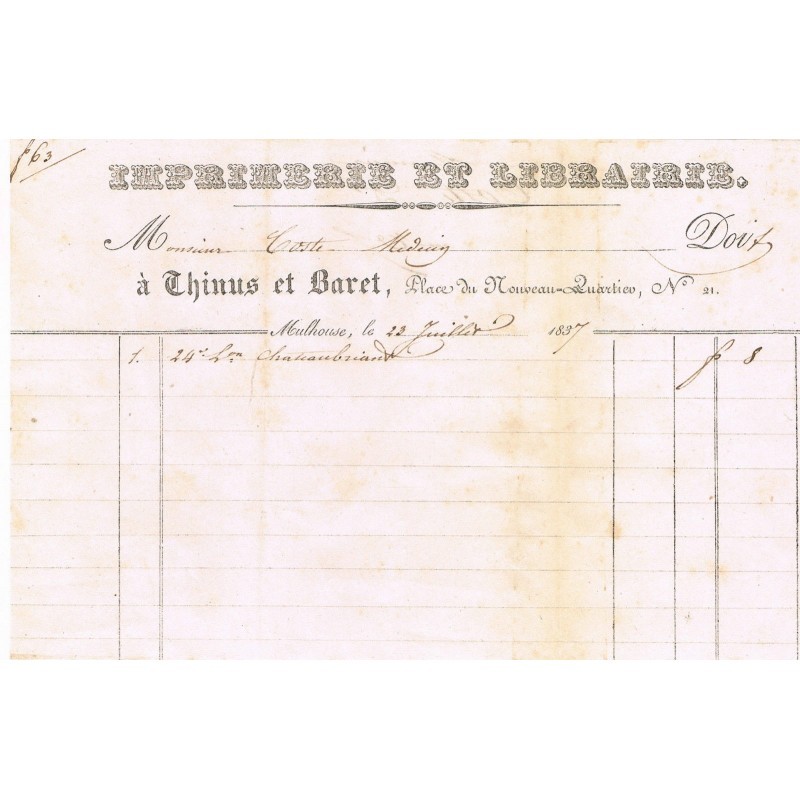 f° 63
IMPRIMERIE ET LIBRAIRIE.
Monsieur Coste Médecin Doit
à Thinus et Baret, Place du Nouveau-Quartier, N° 21.
Mulhouse, le 23 Juillet 1837
1. 24e Lon Chateaubriand f 8